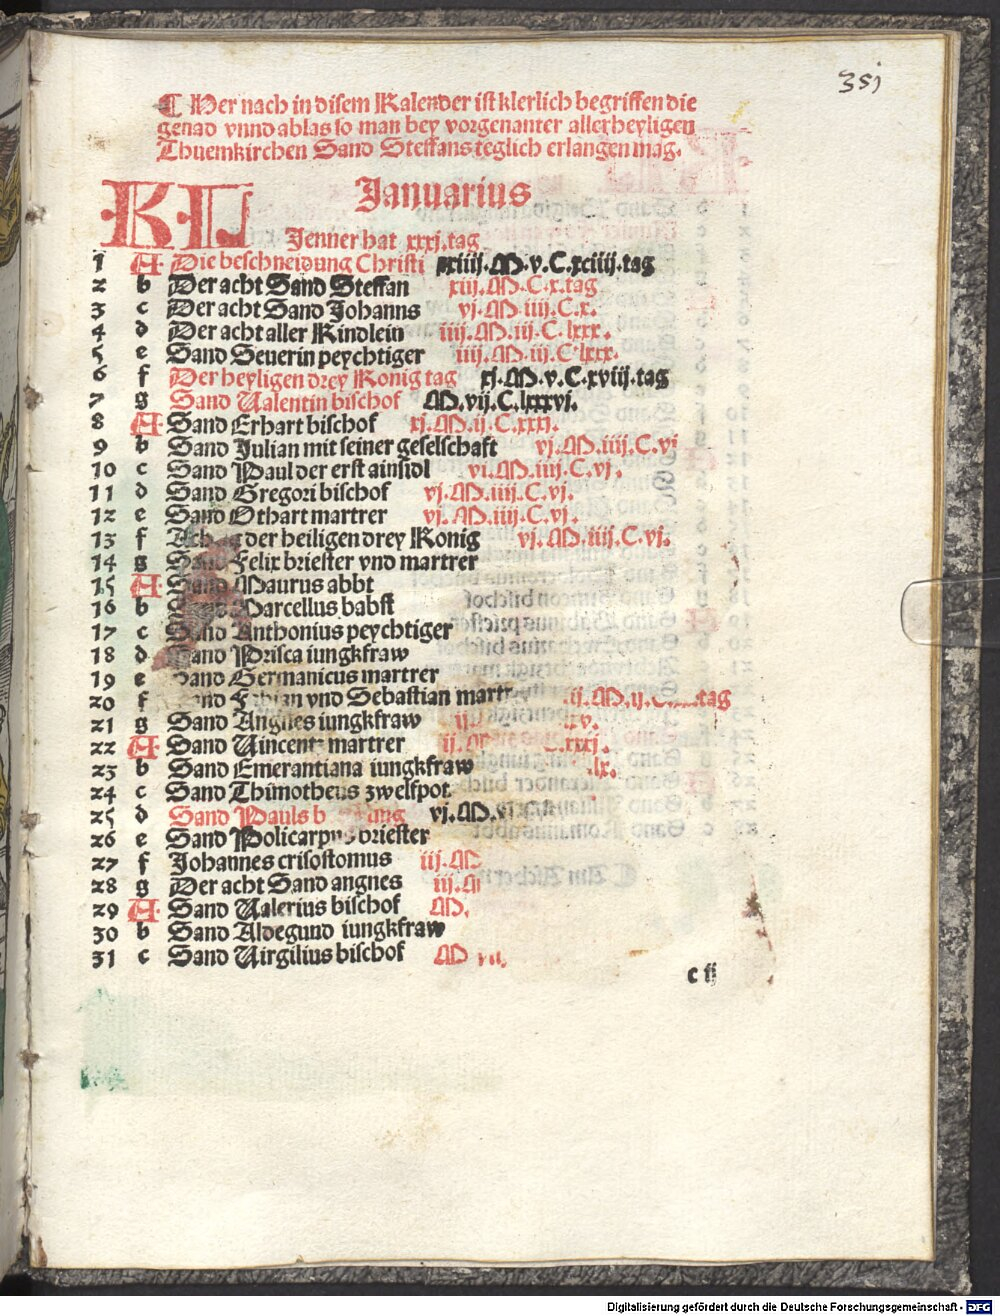 35j
¶ Her nach in disem Kalender ist klerlich begriffen die
genad vnnd ablas so man bey vorgenanter allerheyligen
Thuemkirchen Sand Steffans teglich erlangen mag.
KL Januarius
Jenner hat xxxj.tag
1 A Die beschneidung Christi xiiij.M.v.C.xciiij.tag
2 b Der acht Sand Steffan xiij.M.C.x.tag
3 c Der acht Sand Johanns vj.M.iiij.C.x.
4 d Der acht aller Kindlein iiij.M.iij.C.lxxx.
5 e Sand Seuerin peychtiger iiij.M.iij.C.lxxx.
6 f Der heyligen drey Konig tag xj.M.v.C.xviij.tag
7 g Sand Ualentin bischof M.vij.C.lxxxvj.
8 A Sand Erhart bischof xj.M.ij.C.xxxj.
9 b Sand Julian mit seiner geselschaft vj.M.iiij.C.vj
10 c Sand Paul der erst ainsidl vj.M.iiij.C.vj.
11 d Sand Gregori bischof vj.M.iiij.C.vj.
12 e Sand Othart martrer vj.M.iiij.C.vj.
13 f der heiligen drey Konig vj.M.iiij.C.vj.
14 g Sand Felix briester vnd martrer
15 A Sand Maurus abbt
16 b Sand Marcellus babst
17 c Sand Anthonius peychtiger
18 d Sand Prisca iungkfraw
19 e Sand Germanicus martrer
20 f Sand Fabian vnd Sebastian martr ij.M.ij.C. tag
21 g Sand Angnes iungkfraw ij xv.
22 A Sand Uincentz martrer ij. .xxxj.
23 b Sand Emerantiana iungkfraw .lx.
24 c Sand Thimotheus zwelfpot
25 d Sand Pauls b vj.M.
26 e Sand Policarpus briester
27 f Johannes crisostomus iij.M
28 g Der acht Sand angnes iij.M
29 A Sand Ualerius bischof M.
30 b Sand Aldegund iungkfraw
31 c Sand Uirgilius bischof M vij.
c ij
Digitalisierung gefördert durch die Deutsche Forschungsgemeinschaft - DFG